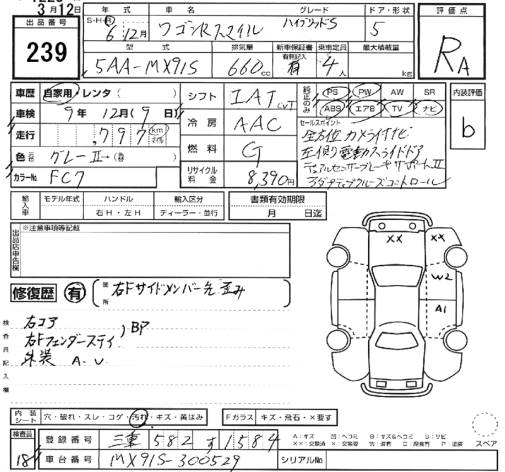 3月12日
出品番号
239
年式
S・H・R
6年12月
車名
ワゴンRスマイル
グレード
ハイブリッドS
ドア・形状
5
評価点
RA
型式
5AA-MX91S
排気量
660cc
新車保証書
有
乗車定員
4人
最大積載量
kg
車歴 自家用・レンタ( )
車検 9年 12月(9日)
走行 797 km マイル
色 グレーⅡ→( )
カラーNo FC7
シフト IAT CVT
冷房 AAC
燃料 G
リサイクル料金 8,390円
純正のみ
PS PW AW SR
ABS エアB TV ナビ
セールスポイント
全方位カメラ付ナビ
左側電動スライドドア
デュアルセンサーブレーキサポートⅡ
アダプティブクルーズコントロール
内装評価
b
輸入車
モデル年式
ハンドル
右H・左H
輸入区分
ディーラー・並行
書類有効期限
月 日迄
出品店申告欄
※注意事項等記載
修復歴 有
箇所
右Fサイドメンバー先歪み
検査員記入欄
右コア
右Fフェンダーステイ ) BP
外装 A.U
XX XX
W2
A1
内装シート 穴・破れ・スレ・コゲ・汚れ・キズ・黄ばみ
Fガラス キズ・飛石・×要す
検査品
18
登録番号 三重 582 す 1584
車台番号 MX91S-300529
シリアルNo
スペア